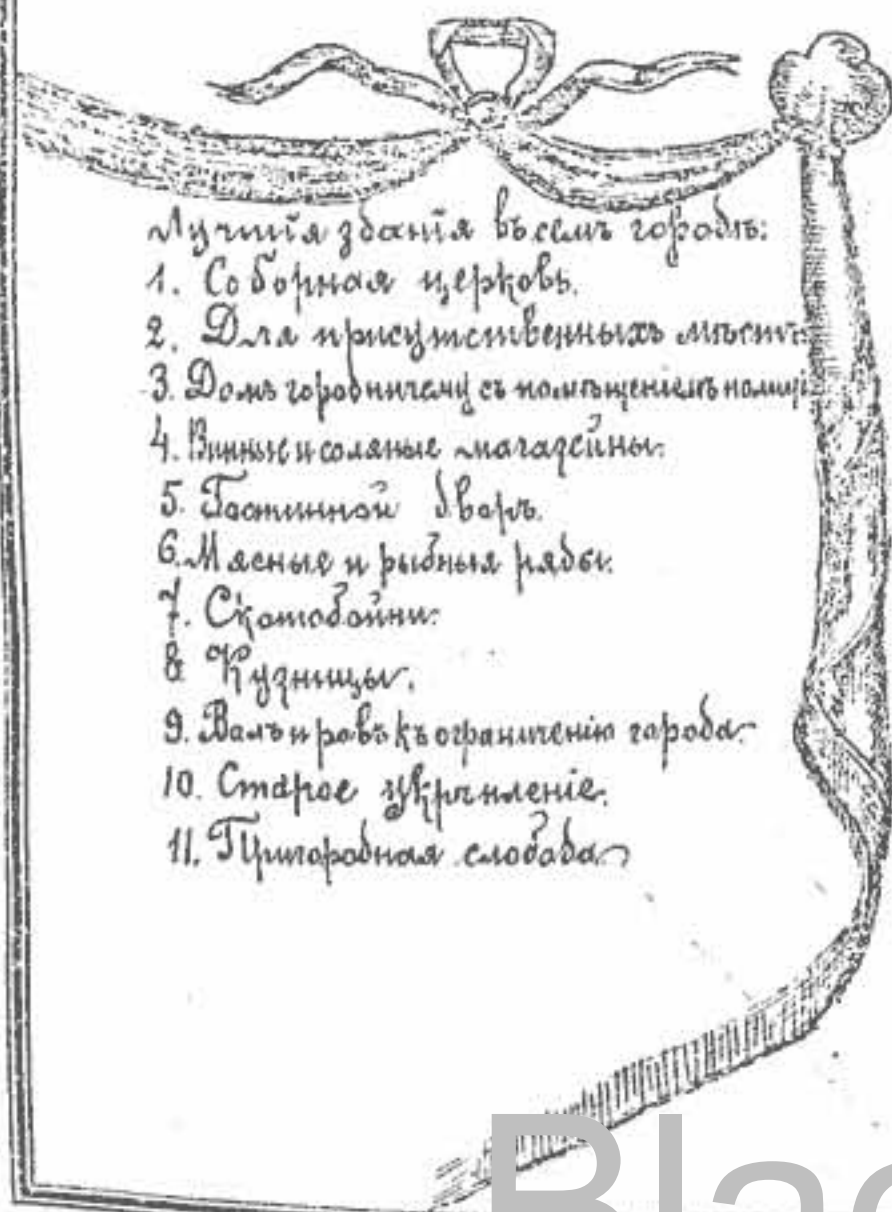 Лучшія зданія въ семъ городѣ:
1. Соборная церковь.
2. Для присутственныхъ мѣстъ.
3. Домъ городничему съ помѣщеніемъ полиці
4. Винные и соляные магазейны.
5. Гостинной дворъ.
6. Мясные и рыбныя ряды.
7. Скотобойни.
8 Кузницы.
9. Валъ и ровъ къ ограниченію города.
10. Старое укрѣпленіе.
11. Пригородная слобода
Blac